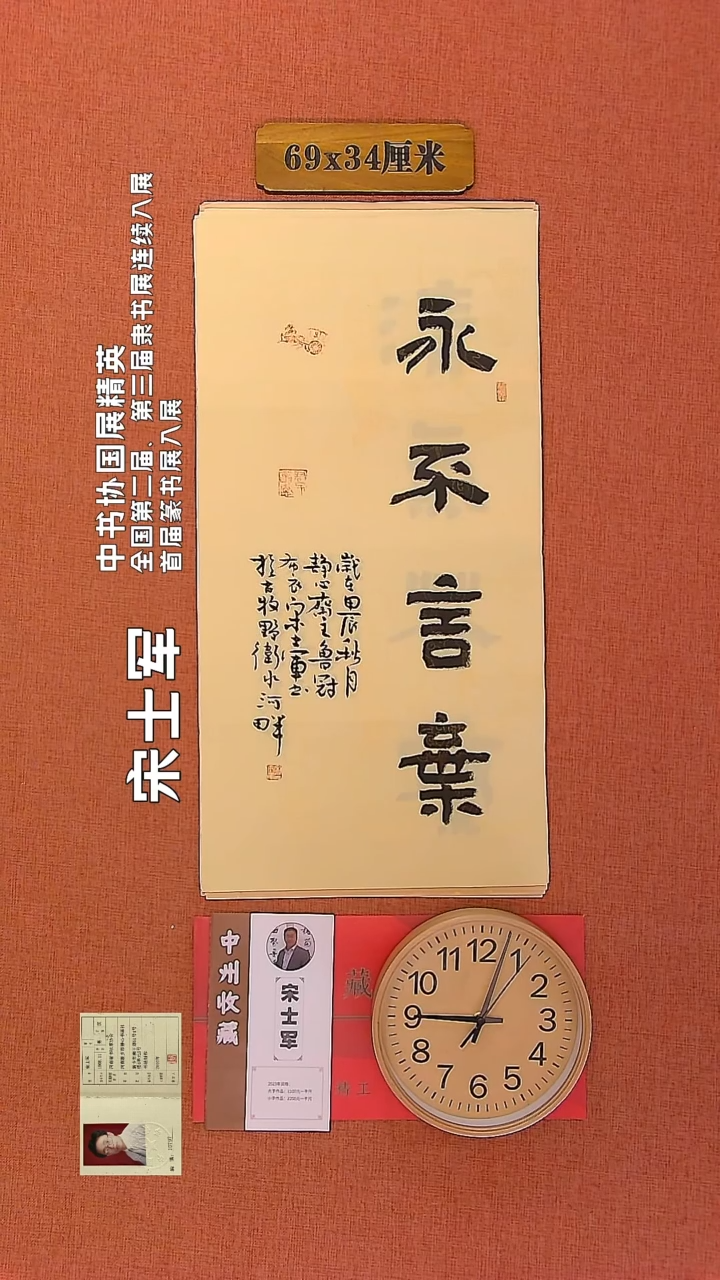 69x34厘米
永不言棄
歲在甲辰秋月
静心齋主魯冠
布衣宋士軍書
於古牧野衛水河畔
中书协国展精英
全国第二届、第三届隶书展连续入展
首届篆书展入展
宋士军
中
藏
宋士军
藏
12
1
2
3
4
5
6
7
8
9
10
11